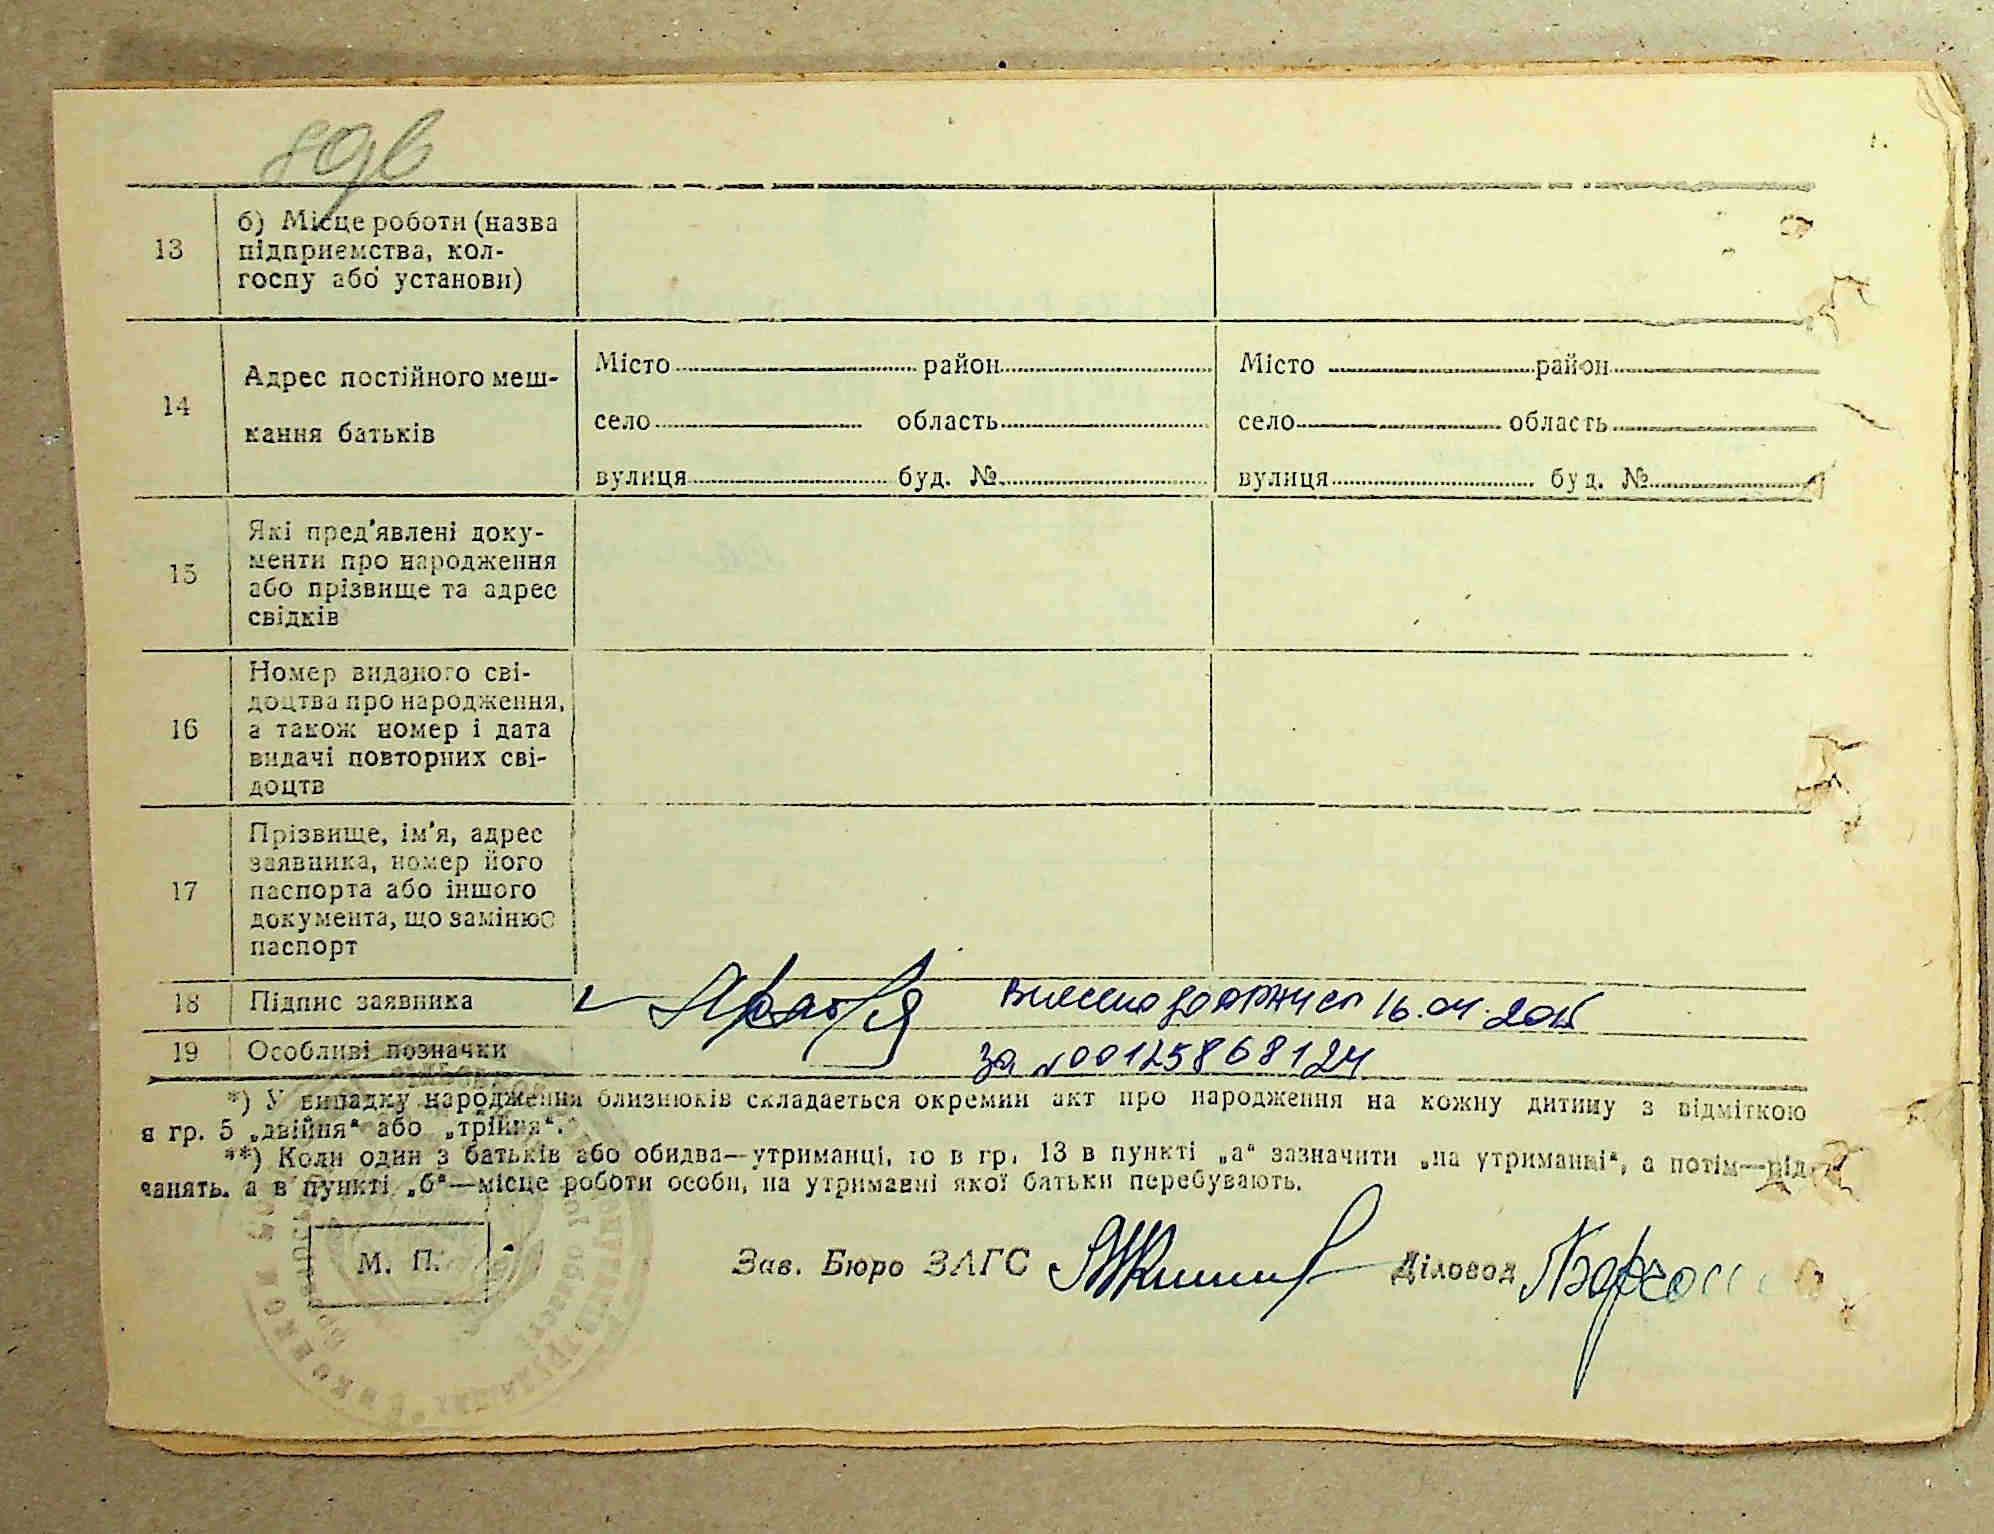 13
б) Місце роботи (назва
підприємства, кол-
госпу або установи)
14
Адрес постійного меш-
кання батьків
Місто район
село область
вулиця буд. №
Місто район
село область
вулиця буд. №
15
Які пред'явлені доку-
менти про народження
або прізвище та адрес
свідків
16
Номер виданого сві-
доцтва про народження,
а також номер і дата
видачі повторних сві-
доцтв
17
Прізвище, ім'я, адрес
заявника, номер його
паспорта або іншого
документа, що замінює
паспорт
18 Підпис заявника
Внесено до ДРАЦС 16.04.2015
19 Особливі позначки
за №00125868124
*) У випадку народження близнюків складається окремий акт про народження на кожну дитину з відміткою
в гр. 5 „двійня“ або „трійня“.
**) Коли один з батьків або обидва—утриманці, то в гр. 13 в пункті „а“ зазначити „на утриманні“, а потім—від
чанять. а в пункті „б“—місце роботи особи, на утриманні якої батьки перебувають.
М. П.
Зав. Бюро ЗАГС
Діловод